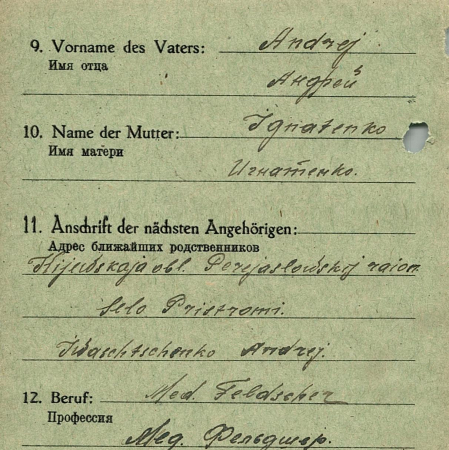 9. Vorname des Vaters: Andrej
Имя отца
Андрей
10. Name der Mutter: Ignatenko
Имя матери
Игнатенко.
11. Anschrift der nächsten Angehörigen:
Адрес ближайших родственников
Kijewskaja obl. Perejaslowskij raion
Selo Pristromi.
Iwaschtschenko Andrej.
12. Beruf: Med. Feldscher
Профессия
Мед. Фельдшер.